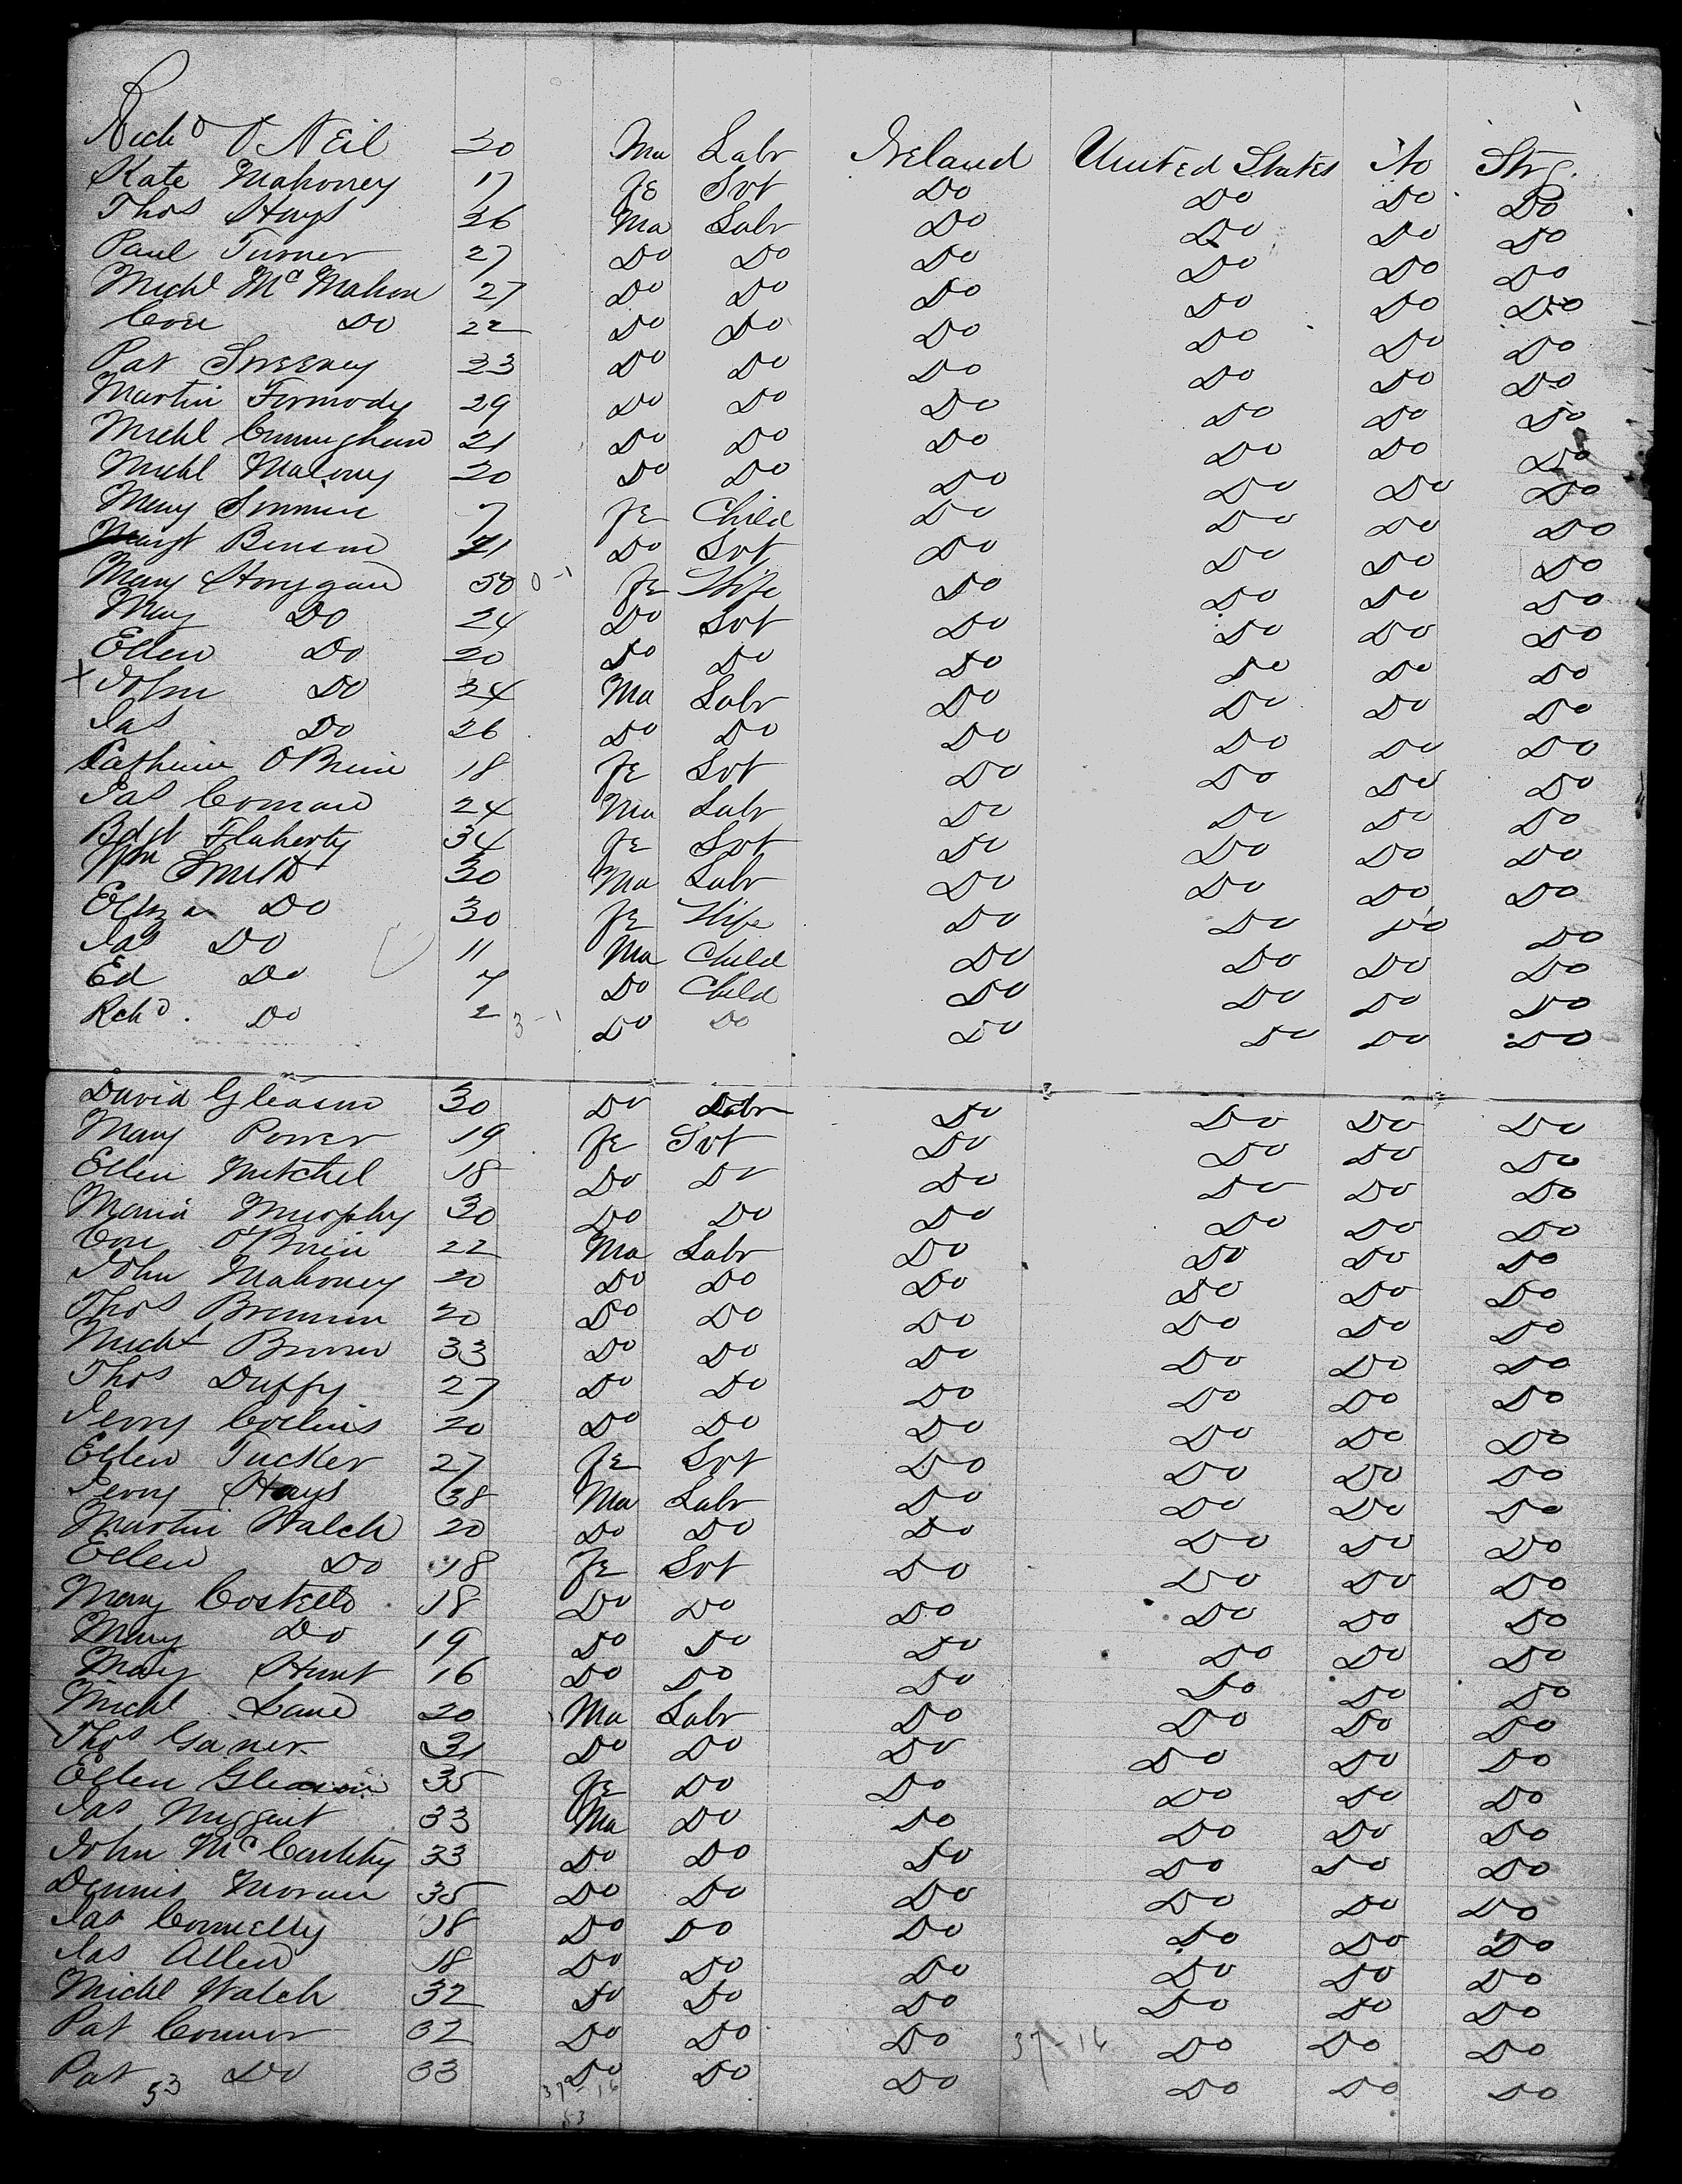 Rich^d O Neil 20 Ma Labr Ireland United States No Strg.
Kate Mahoney 17 Fe Svt Do Do Do Do
Thos Hays 26 Ma Labr Do Do Do Do
Paul Turner 27 Do Do Do Do Do Do
Michl Mc Mahon 27 Do Do Do Do Do Do
Con Do 22 Do Do Do Do Do Do
Pat Sweeney 23 Do Do Do Do Do Do
Martin Formody 29 Do Do Do Do Do Do
Michl Cunningham 21 Do Do Do Do Do Do
Michl Maloney 20 Do Do Do Do Do Do
Mary 7 Fe Child Do Do Do Do
Margt Benson 21 Do Svt Do Do Do Do
Mary 50 0-1 Fe Wife Do Do Do Do
Mary Do 24 Do Svt Do Do Do Do
Ellen Do 20 Do Do Do Do Do Do
x John Do 24 Ma Labr Do Do Do Do
Jas Do 26 Do Do Do Do Do Do
Catherine OBrien 18 Fe Svt Do Do Do Do
Jas 24 Ma Labr Do Do Do Do
Bdgt Flaherty 34 Fe Svt Do Do Do Do
Wm Smith 30 Ma Labr Do Do Do Do
Eliza Do 30 Fe Wife Do Do Do Do
Jas Do 11 Ma Child Do Do Do Do
Ed Do 7 Do Child Do Do Do Do
Rch^d. Do 2 3-1 Do Do Do Do Do Do
David Gleason 30 Do Labr Do Do Do Do
Mary Power 19 Fe Svt Do Do Do Do
Ellen Mitchel 18 Do Do Do Do Do Do
Maria Murphy 30 Do Do Do Do Do Do
Con O'Brien 22 Ma Labr Do Do Do Do
John Mahoney 20 Do Do Do Do Do Do
Thos Brennan 20 Do Do Do Do Do Do
Michl Brown 33 Do Do Do Do Do Do
Thos Duffy 27 Do Do Do Do Do Do
Jerry Collins 20 Do Do Do Do Do Do
Ellen Tucker 27 Fe Svt Do Do Do Do
Jerry Hays 38 Ma Labr Do Do Do Do
Martin Walch 20 Do Do Do Do Do Do
Ellen Do 18 Fe Svt Do Do Do Do
Mary Costello 18 Do Do Do Do Do Do
Mary Do 19 Do Do Do Do Do Do
Mary Hunt 16 Do Do Do Do Do Do
Michl Lane 20 Ma Labr Do Do Do Do
Thos Ganer 31 Do Do Do Do Do Do
Ellen Gleason 35 Fe Do Do Do Do Do
Jas Nuggent 33 Ma Do Do Do Do Do
John Mc Carthy 33 Do Do Do Do Do Do
Dennis Moran 35 Do Do Do Do Do Do
Jas Connelly 18 Do Do Do Do Do Do
Jas Allen 18 Do Do Do Do Do Do
Michl Walch 32 Do Do Do Do Do Do
Pat Connor 32 Do Do Do 37-16 Do Do Do
Pat Do 33 Do Do Do Do Do Do
53 37-16
53